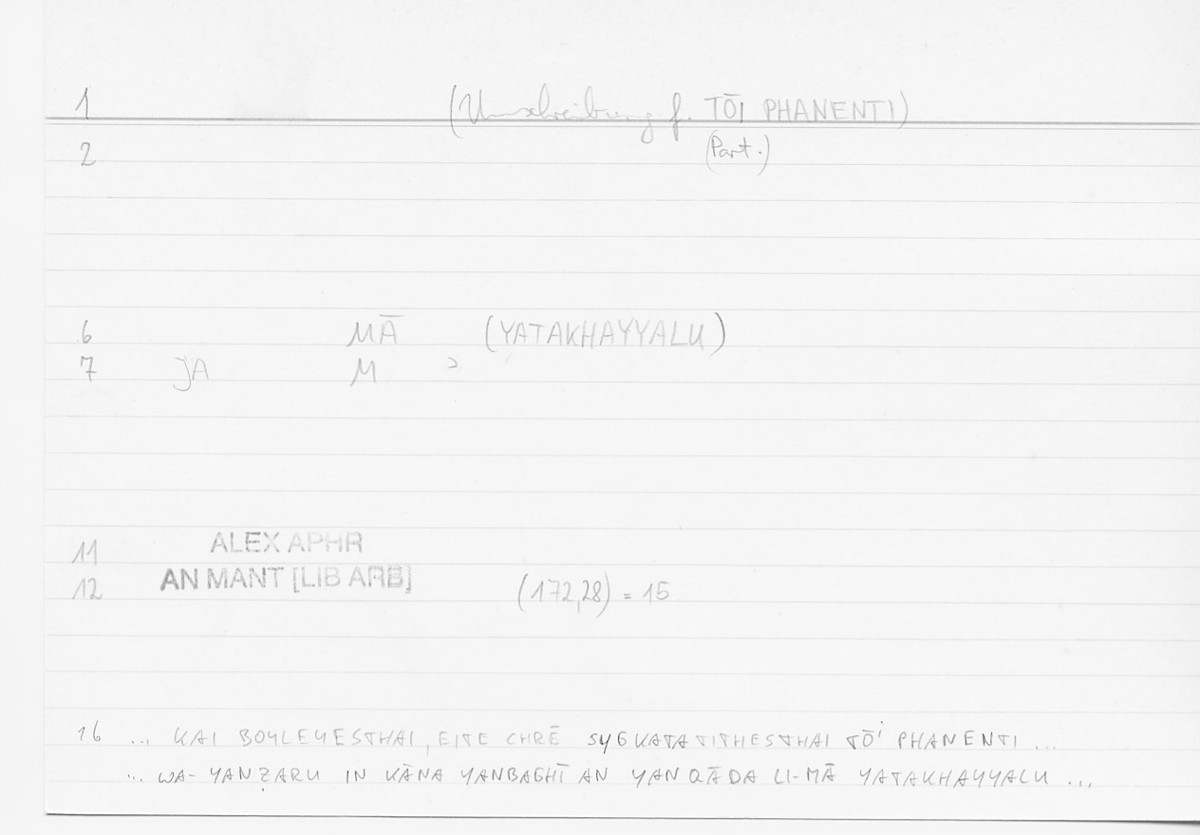 1 (Umschreibung f. TŌI PHANENTI)
2 (Part.)
6 MĀ (YATAKHAYYALU)
7 JA M >
11 ALEX APHR
12 AN MANT [LIB ARB] (172,28) = 15
16 ... KAI BOYLEYESTHAI, EITE CHRĒ SYGKATATITHESTHAI TŌI PHANENTI ...
... WA-YANẒARU IN KĀNA YANBAGHĪ AN YANQĀDA LI-MĀ YATAKHAYYALU ...